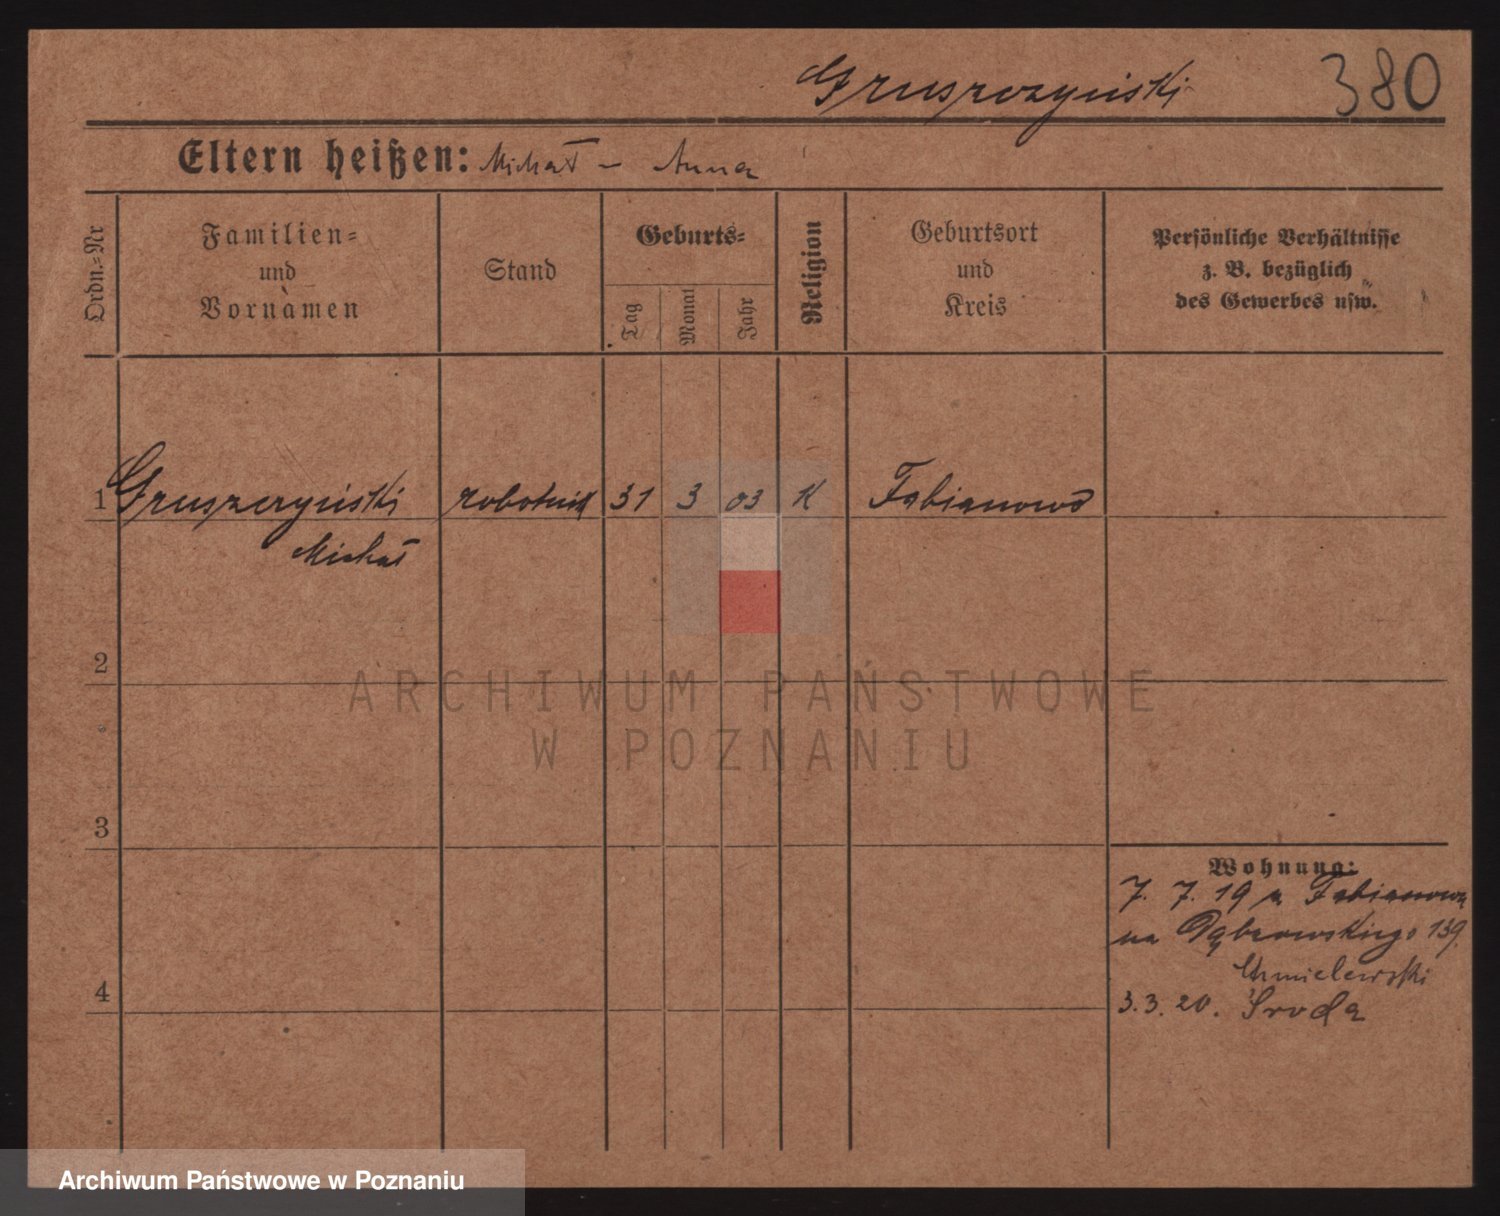 Gruszczyński 380
Eltern heißen: Michał – Anna
Ordn.=Nr
Familien=
und
Vornamen
Stand
Geburts=
Tag
Monat
Jahr
Religion
Geburtsort
und
Kreis
Persönliche Verhältnisse
z. B. bezüglich
des Gewerbes usw.
1 Gruszczyński robotnik 31 3 03 K Fabianowo
Michał
2
ARCHIWUM PAŃSTWOWE
W POZNANIU
3
Wohnung:
7. 7. 19 z Fabianowa
na Dąbrowskiego 139.
Chmielewski
4
3. 3. 20. Środa
Archiwum Państwowe w Poznaniu